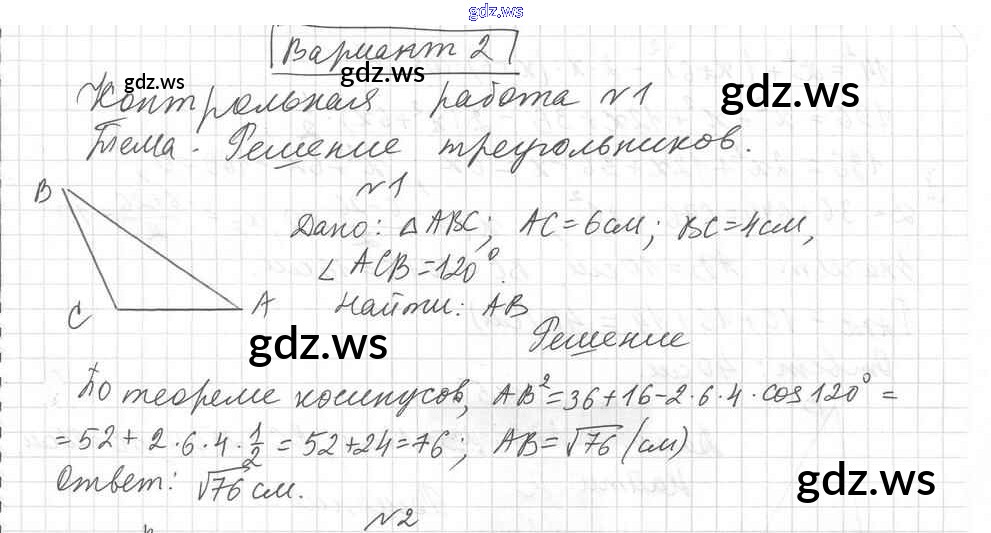 gdz.ws
Вариант 2
gdz.ws gdz.ws gdz.ws
Контрольная работа №1
Тема. Решение треугольников.
№1
B
Дано: △ABC; AC=6см; BC=4см,
∠ACB=120°.
C A
Найти: AB
gdz.ws
Решение
По теореме косинусов, AB²=36+16-2·6·4·cos120°=
=52+2·6·4·1/2=52+24=76; AB=√76 (см)
Ответ: √76 см.
gdz.ws
№2